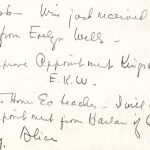 Win just received
from Evelyn Wells -
Appointment Kings
E.K.W.
Home Ec teacher - I will
appointment from Harlan of
Alice